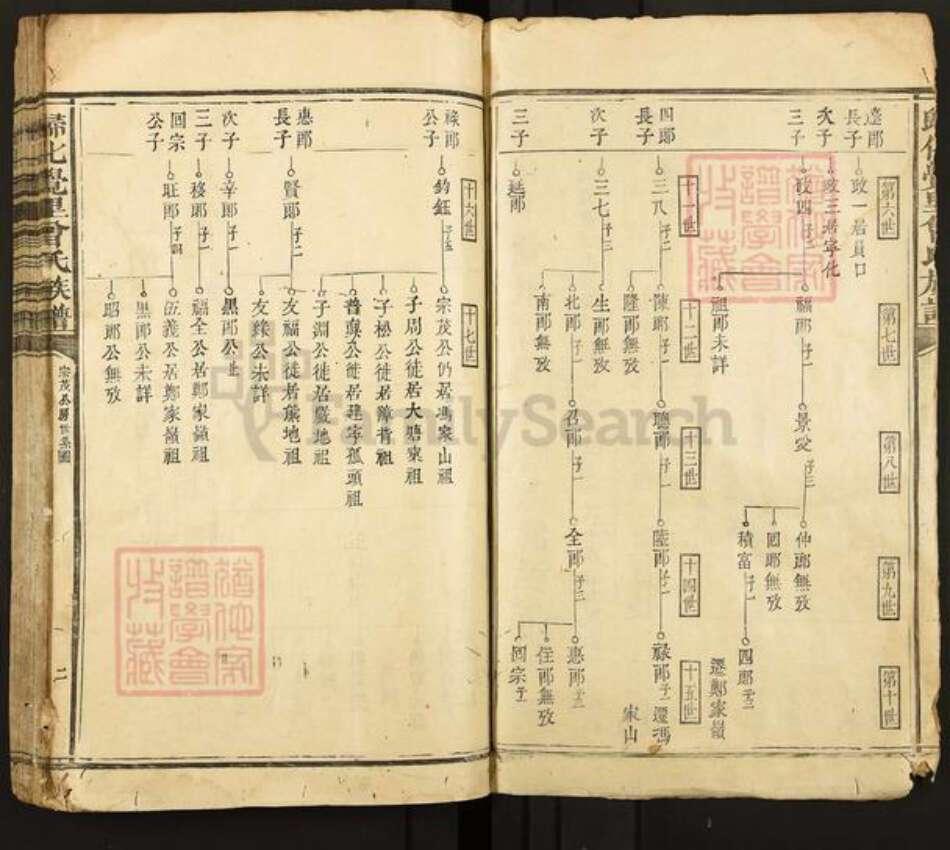 第六世
第七世
第八世
第九世
第十世
長子
政一居員口
次子
政三居寧化
三子
政四 子二
福郎 子一
祖郎未詳
景愛 子三
仲郎無攷
回郎無攷
積富 子一
四郎 子三
遷鄭家嶺
十一世
十二世
十三世
十四世
十五世
四郎長子
三八 子二
陳郎 子一
隆郎無攷
聰郎 子一
陸郎 子一
祿郎 子一 遷馮家山
次子
三七 子三
生郎無攷
北郎 子一
南郎無攷
召郎 子一
全郎 子三
惠郎 子三
住郎無攷
回宗 子一
三子
延郎
十六世
十七世
祿郎公子
鈞鈺 子五
宗茂公仍居馮家山祖
子周公徙居大塘寨祖
子松公徙居障背祖
普與公徙居建寧孤頭祖
子淵公徙居嚴地祖
惠郎長子
賢郎 子二
友福公徙居熊地祖
友錄公未詳
次子
辛郎 子一
黑郎公
三子
移郎 子一
福全公居鄭家嶺祖
回宗公子
旺郎 子三
伍義公居鄭家嶺祖
黑郎公未詳
昭郎公無攷
歸化覺里曾氏族譜
宗茂公歷世系圖
二
FamilySearch